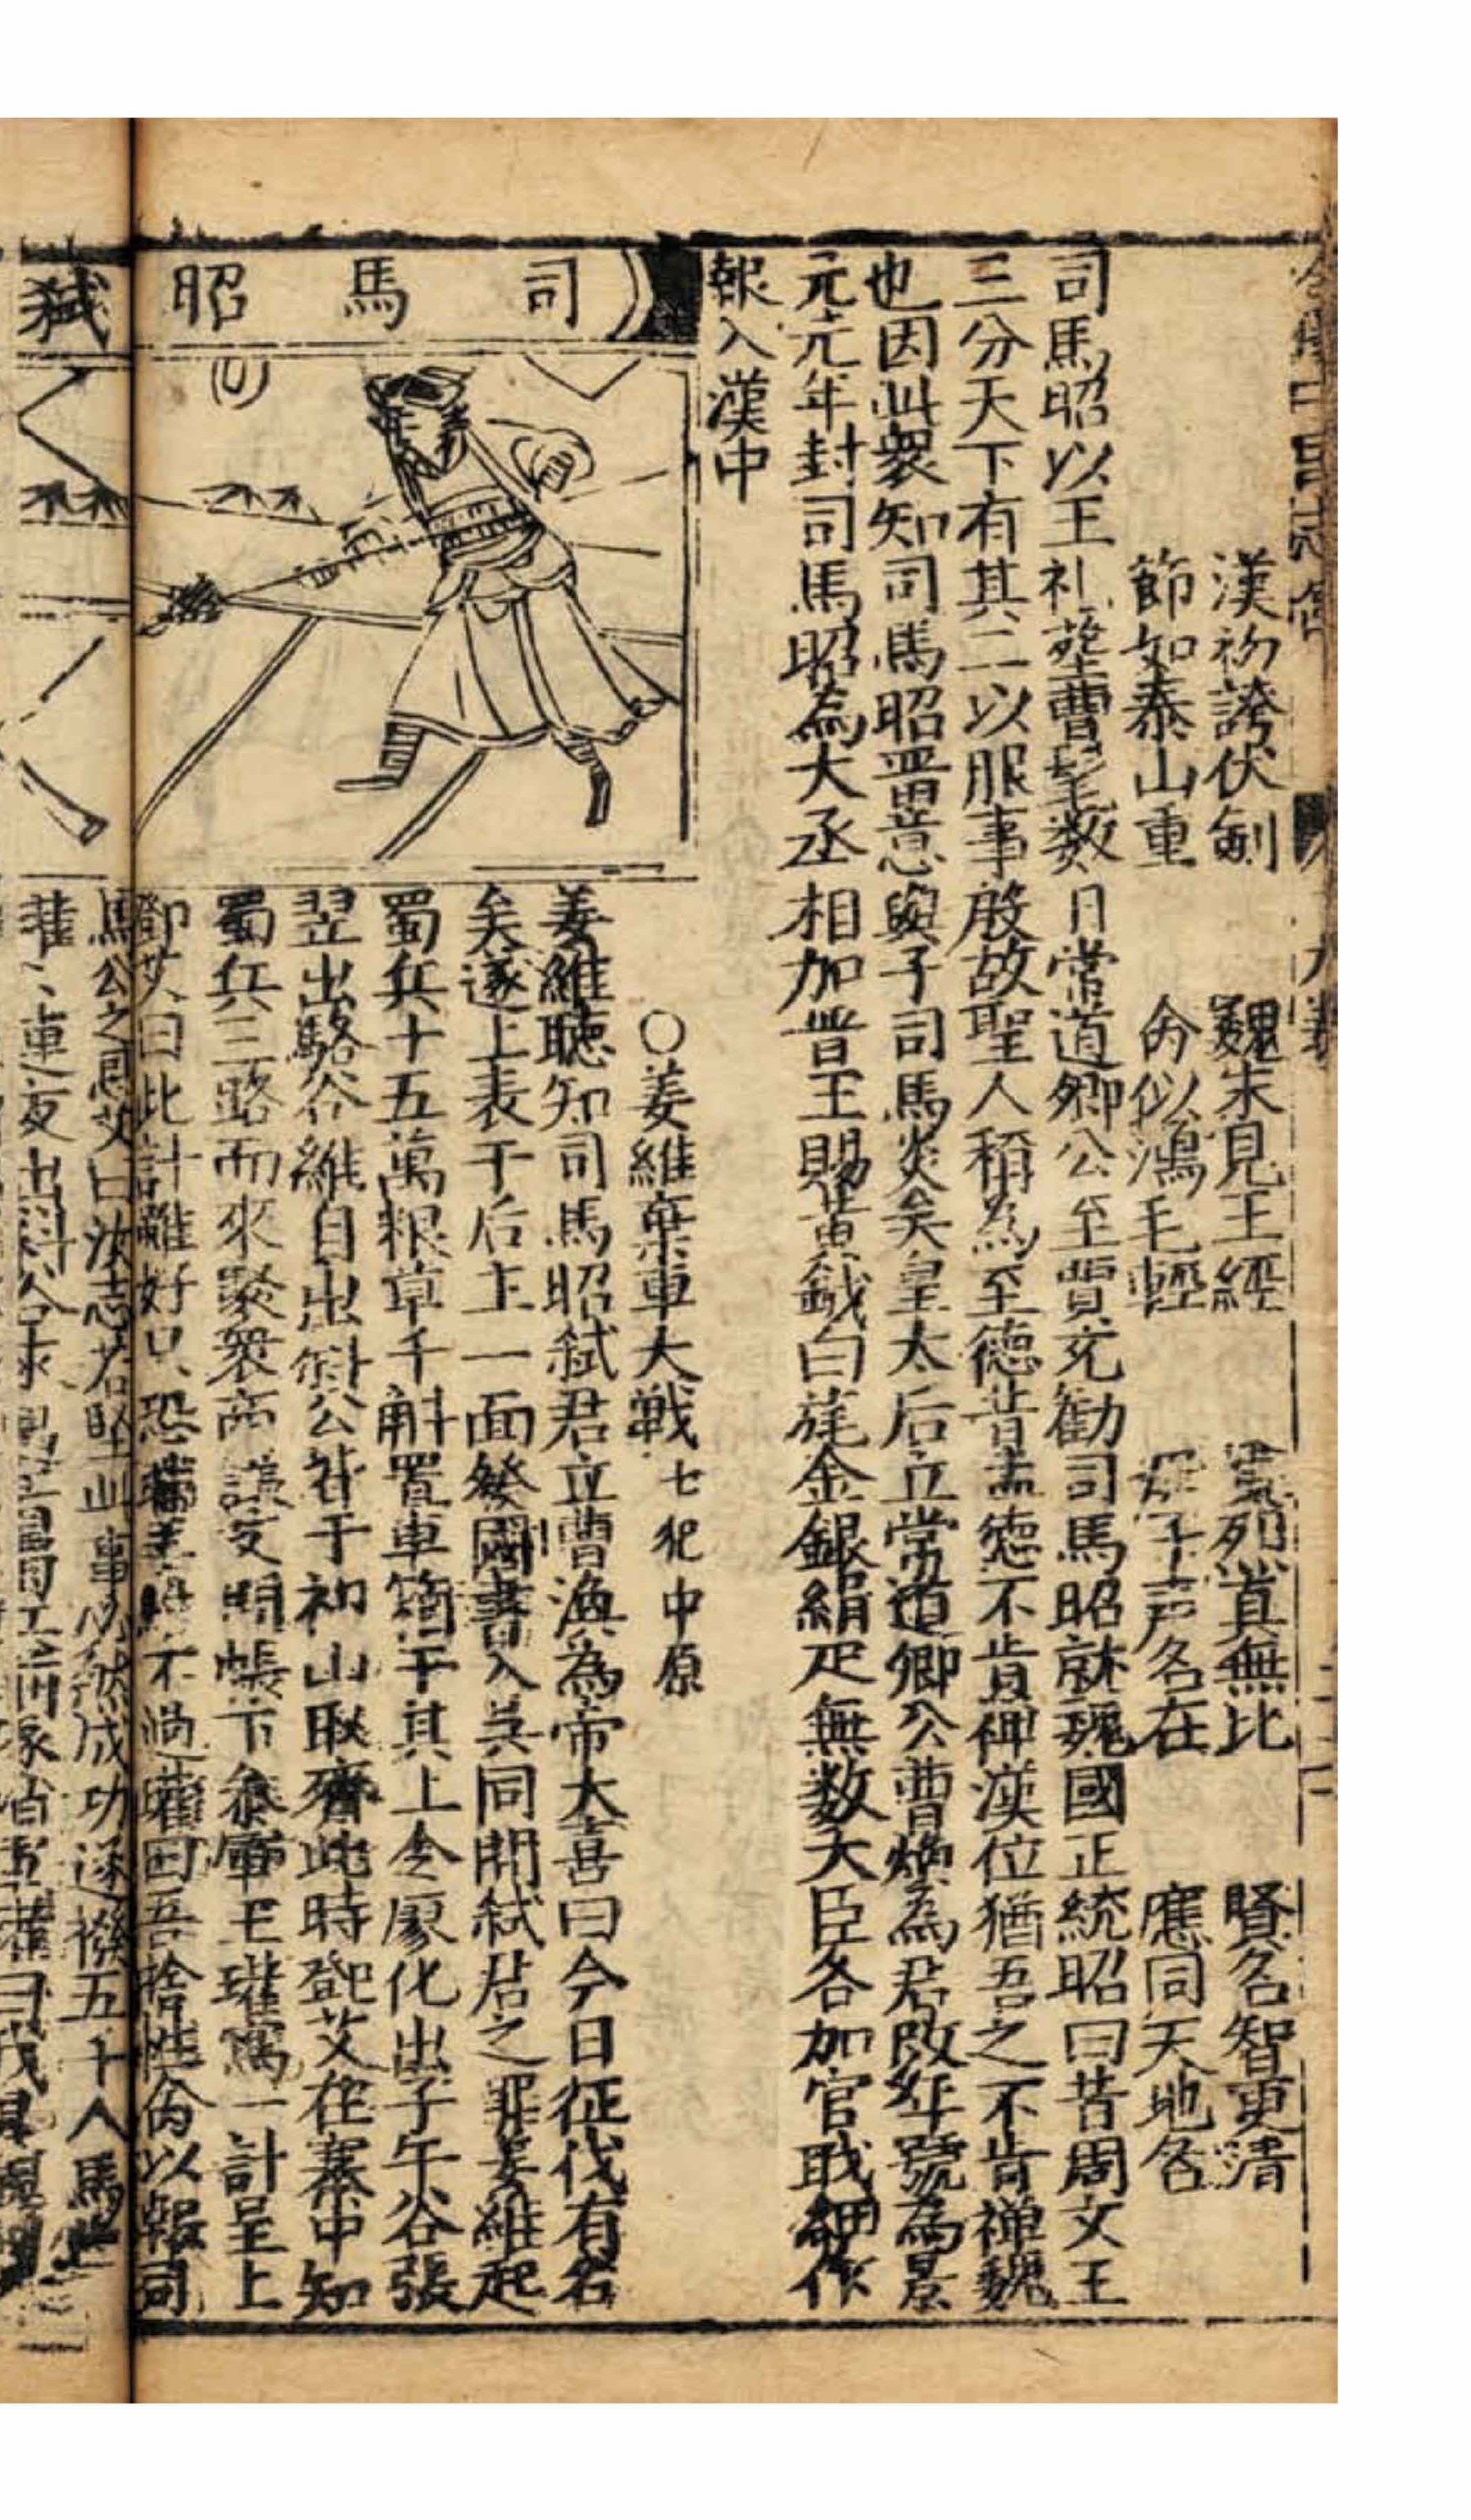 漢初誇伏劍　魏末見王經　烈真無比　賢名智更清
節如泰山重　命似鴻毛輕　母子声名在　應同天地各
司馬昭以王礼塟曹髦数日常道卿公至賈充勸司馬昭就魏國正統昭曰昔周文王
三分天下有其二以服事殷故聖人稱為至德昔孟德不肯禅漢位猶吾之不肯禅魏
也因此衆知司馬昭畱意與子司馬炎矣皇太后立常道卿公曹煥為君改年號為景
元元年封司馬昭為大丞相加晋王賜黄鉞白旄金銀絹疋無数大臣各加官戢細作
報入漢中
司馬昭
弑
○姜維棄車大戰　七犯中原
姜維聴知司馬昭弑君立曹渙為帝大喜曰今日征伐有名
矣遂上表于后主一面發國書入吳同問弑君之罪姜維起
蜀兵十五萬粮草千斛置車箱于其上令廖化出子午谷張
翌出駱谷維自出斜谷皆于祁山取齊此時鄧艾在寨中知
蜀兵三路而來聚衆商議支間帳下參軍王瓘寫一計呈上
鄧艾曰此計雖好只恐瞞姜維不過瓘曰吾捨性命以報司
馬公之恩艾曰汝志若堅此事必然成功遂撥五千人馬
瓘連夜出斜谷